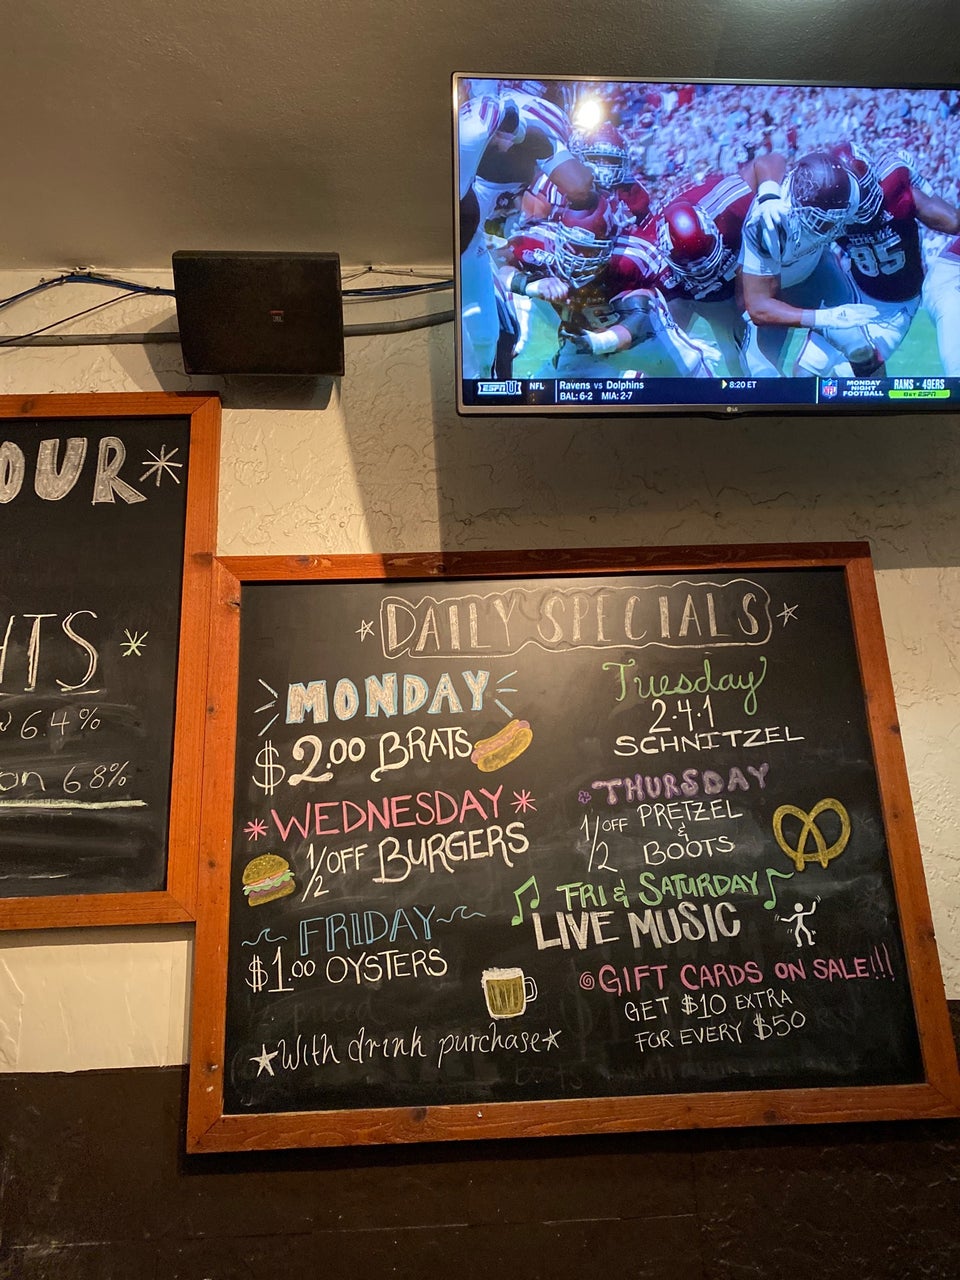 85
ESPNU NFL Ravens vs Dolphins 8:20 ET NFL MONDAY NIGHT FOOTBALL RAMS 49ERS
BAL: 6-2 MIA: 2-7 ESPN
LG
JBL
OUR
TS
6.4%
on 68%
DAILY SPECIALS
MONDAY
$2.00 BRATS
Tuesday
2.4.1
SCHNITZEL
WEDNESDAY
1/2 OFF BURGERS
THURSDAY
1/2 OFF PRETZEL
&
BOOTS
FRIDAY
$1.00 OYSTERS
FRI & SATURDAY
LIVE MUSIC
With drink purchase
GIFT CARDS ON SALE!!!
GET $10 EXTRA
FOR EVERY $50